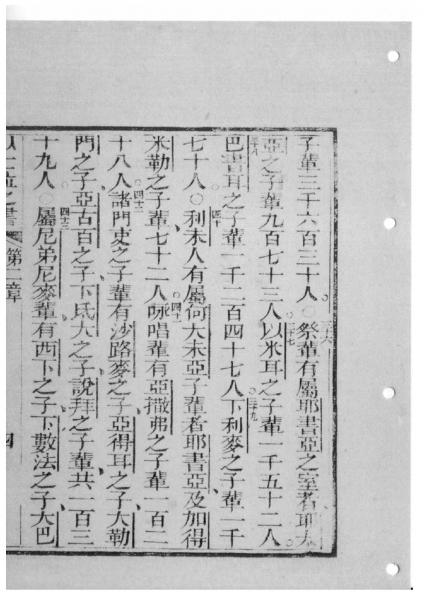 子輩三千六百三十人○三十六祭輩有屬耶書亞之室者耶大
亞之子輩九百七十三人三十七以米耳之子輩一千五十二人
三十八巴書耳之子輩一千二百四十七人三十九下利麥之子輩一千
七十人○四十利未人有屬何大未亞子輩者耶書亞及加得
米勒之子輩七十二人○四十一咏唱輩有亞撒弗之子輩一百二
十八人○四十二諸門吏之子輩有沙路麥之子亞得耳之子大勒
門之子亞古百之子下氐大之子說拜之子輩共一百三
十九人○四十三屬尼弟尼麥輩有西下之子下數法之子大巴
以士拉之書 第二章 四